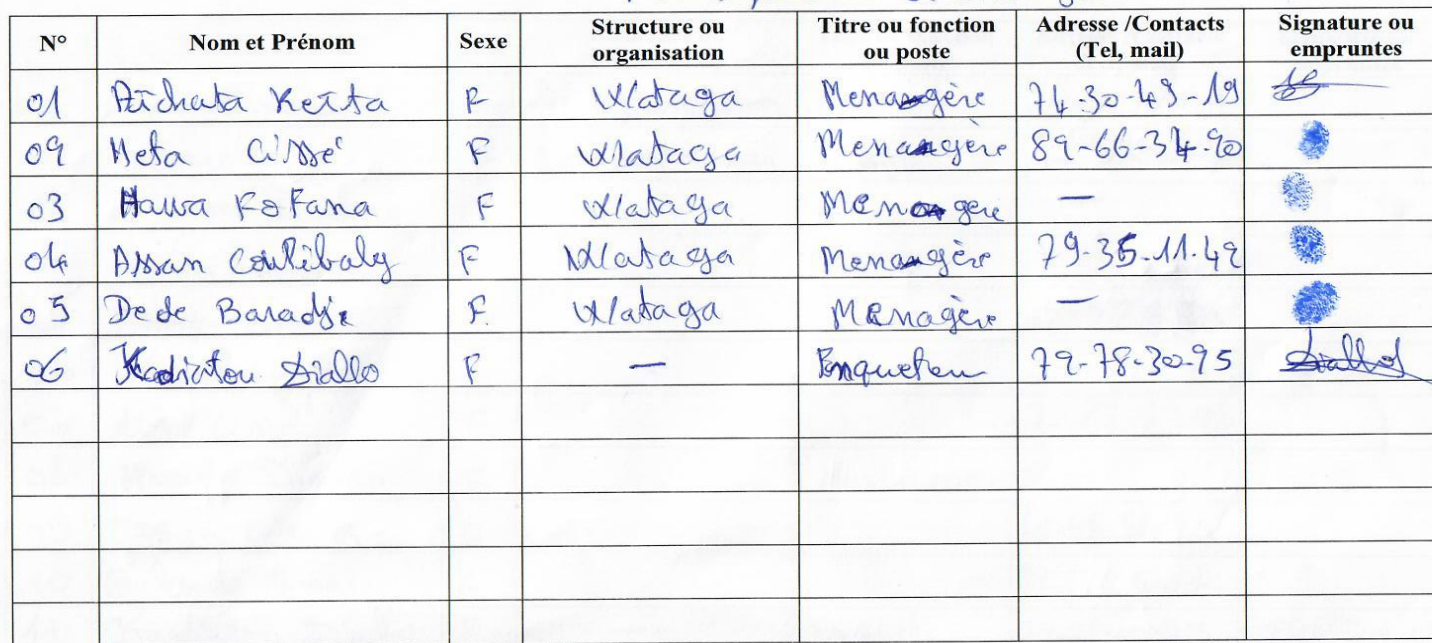 N° Nom et Prénom Sexe Structure ou organisation Titre ou fonction ou poste Adresse /Contacts (Tel, mail) Signature ou empruntes
01 Aichata Keita F Wlataga Menagère 74-30-43-19
02 Meta Cissé F Wlataga Menagère 89-66-34-90
03 Hawa Fofana F Wlataga Menagere —
04 Assan Coulibaly F Wlataga Menagère 79-35-11-42
05 Dede Baradji F. Wlataga Menagère —
06 Kadiatou Diallo F — Enqueteur 79-78-30-95 Diallo